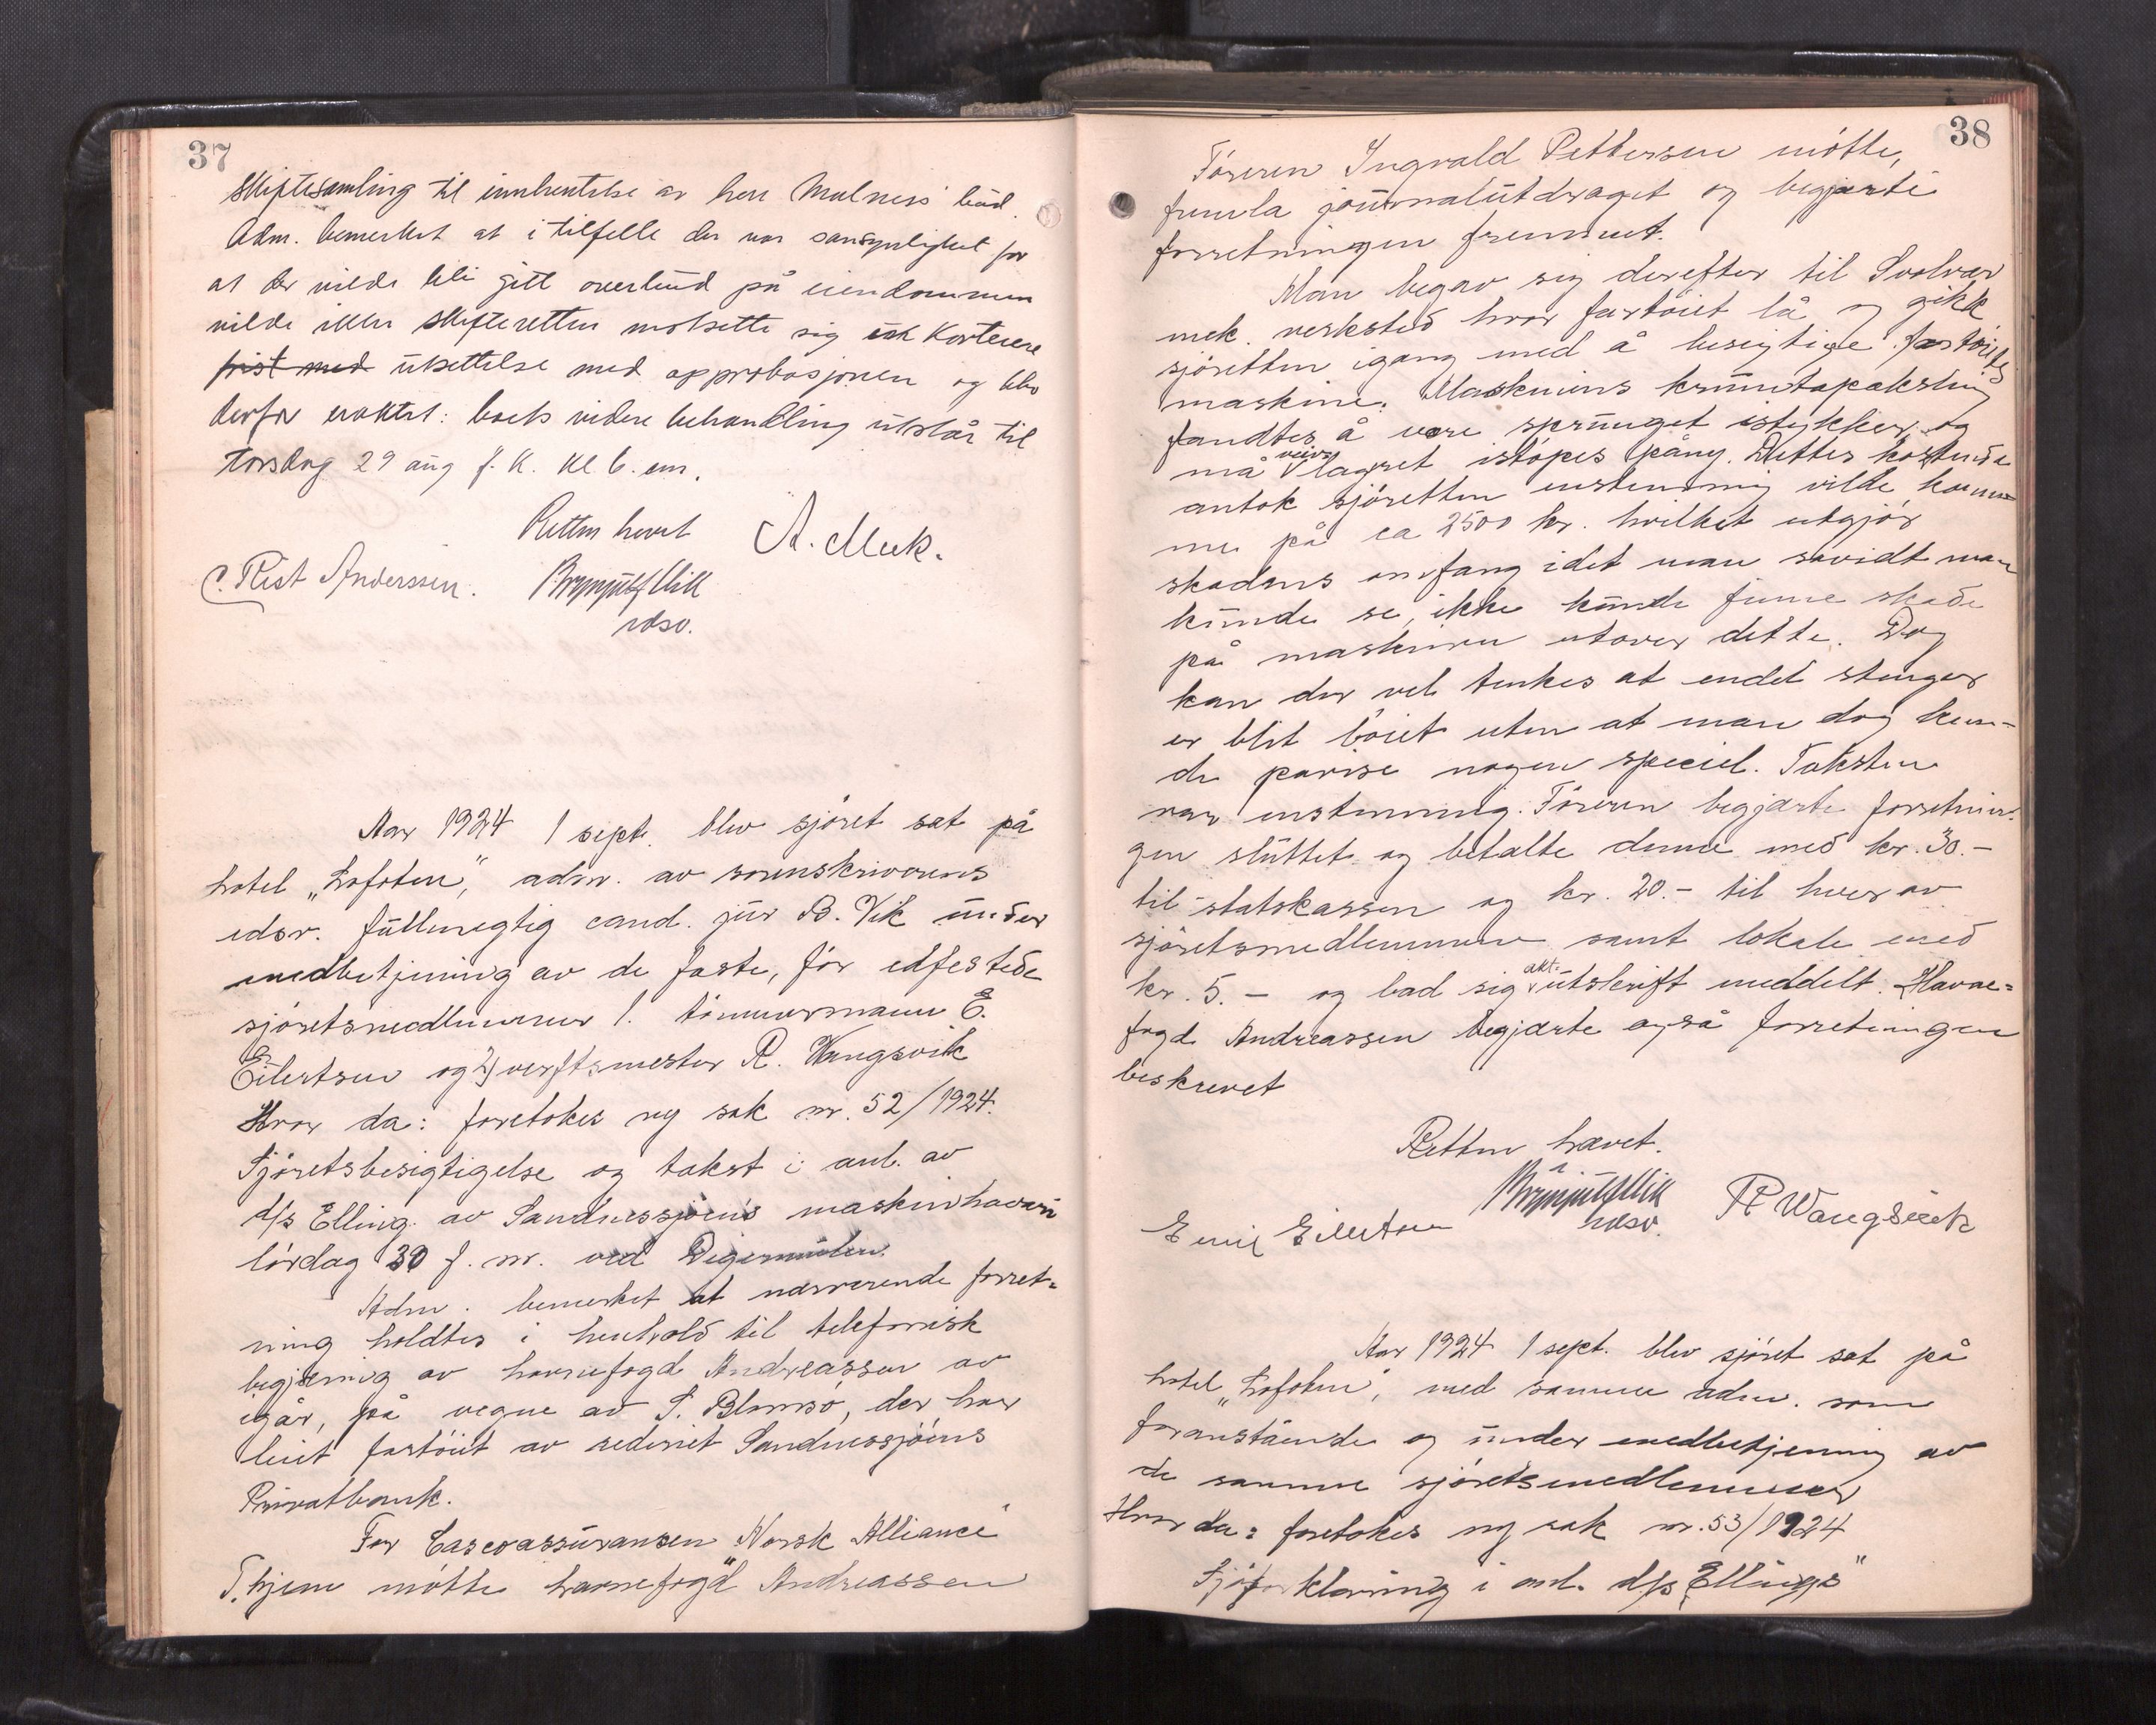 37
skiftesamling til innhentelse av herr Malness' bud.
Adm. bemerket at i tilfelle der var sansynlighet for
at der vilde bli gitt overbud på eiendommen
vilde ikke skifteretten motsette sig en kortere
frist med utsettelse med approbasjonen og blev
derfor eraktet: boets videre behandling utstår til
torsdag 29 aug f. k. kl. 6. em.
Retten hevet
A. Meek.
C. Rist Anderssen.
Brynjulf Vik
edsv.
Aar 1924 1 sept. blev sjöret sat på
hotel „Lofoten", adm. av sorenskriverens
edsv. fullmegtig cand. jur B. Vik under
medbetjening av de faste, för edfestede
sjöretsmedlemmer 1. tömmermann E.
Eilertsen og 2) verftsmester R. Wangsvik
Hvor da: foretokes ny sak nr. 52/1924.
Sjöretsbesigtigelse og takst i anl. av
d/s Elling av Sandnessjöens maskinhavari
lördag 30 f. m. ved Digermulen.
Adm. bemerket at nærværende forret=
ning holdtes i henhold til telefonisk
begjæring av havnefogd Andreassen av
igår, på vegne av S. Blomsö, der har
leiet fartöiet av rederiet Sandnessjöens
Privatbank.
For Cascoassuransen Norsk Alliance"
T.hjem mötte havnefogd Andreassen
38
Föreren Ingvald Pettersen mötte,
fremla journalutdraget og begjærte
forretningen fremmet.
Man begav sig derefter til Svolvær
mek. verksted hvor fartöiet lå og gikk
sjöretten igang med å besigtige fartöiets
maskine. Maskinens krumtapaksling
fandtes å være sprunget istykker og
må veiv lagret istöpes påny. Dettes kostende
antok sjöretten enstemmig vilde komme
me på ca 2500 kr. hvilket utgjör
skadens omfang idet man såvidt man
kunde se, ikke kunde finne skade
på maskinen utover dette. Dog
kan der vel tenkes at endel stenger
er blit böiet uten at man dog kun-
de påvise nogen speciel. Taksten
var enstemmig. Föreren begjærte forretnin-
gen sluttet og betalte denne med kr. 30.-
til statskassen og kr. 20.- til hver av
sjöretsmedlemmene samt lokale med
kr. 5.- og bad sig akt. utskrift meddelt. Havne=
fogd Andreassen begjærte også forretningen
beskrevet
Retten hævet.
Emil Eilertsen
Brynjulf Vik
edsv.
R Wangsvik
Aar 1924 1 sept. blev sjöret sat på
hotel „Lofoten", med samme adm. som
foranstående og under medbetjening av
de samme sjöretsmedlemmer
Hvor da: foretokes ny sak nr. 53/1924
Sjöforklaring i anl. d/s „Ellings"